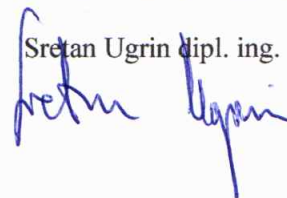 Sretan Ugrin dipl. ing.
Sretan Ugrin